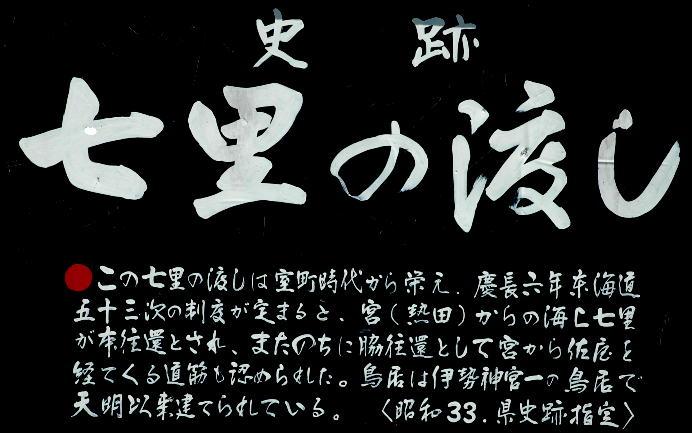 史 跡
七里の渡し
●この七里の渡しは室町時代から栄え、慶長六年東海道
五十三次の制度が定まると、宮(熱田)からの海上七里
が本往還とされ、またのちに脇往還として宮から佐屋を
経てくる道筋も認められた。鳥居は伊勢神宮一の鳥居で
天明以来建てられている。 〈昭和33.県史跡指定〉